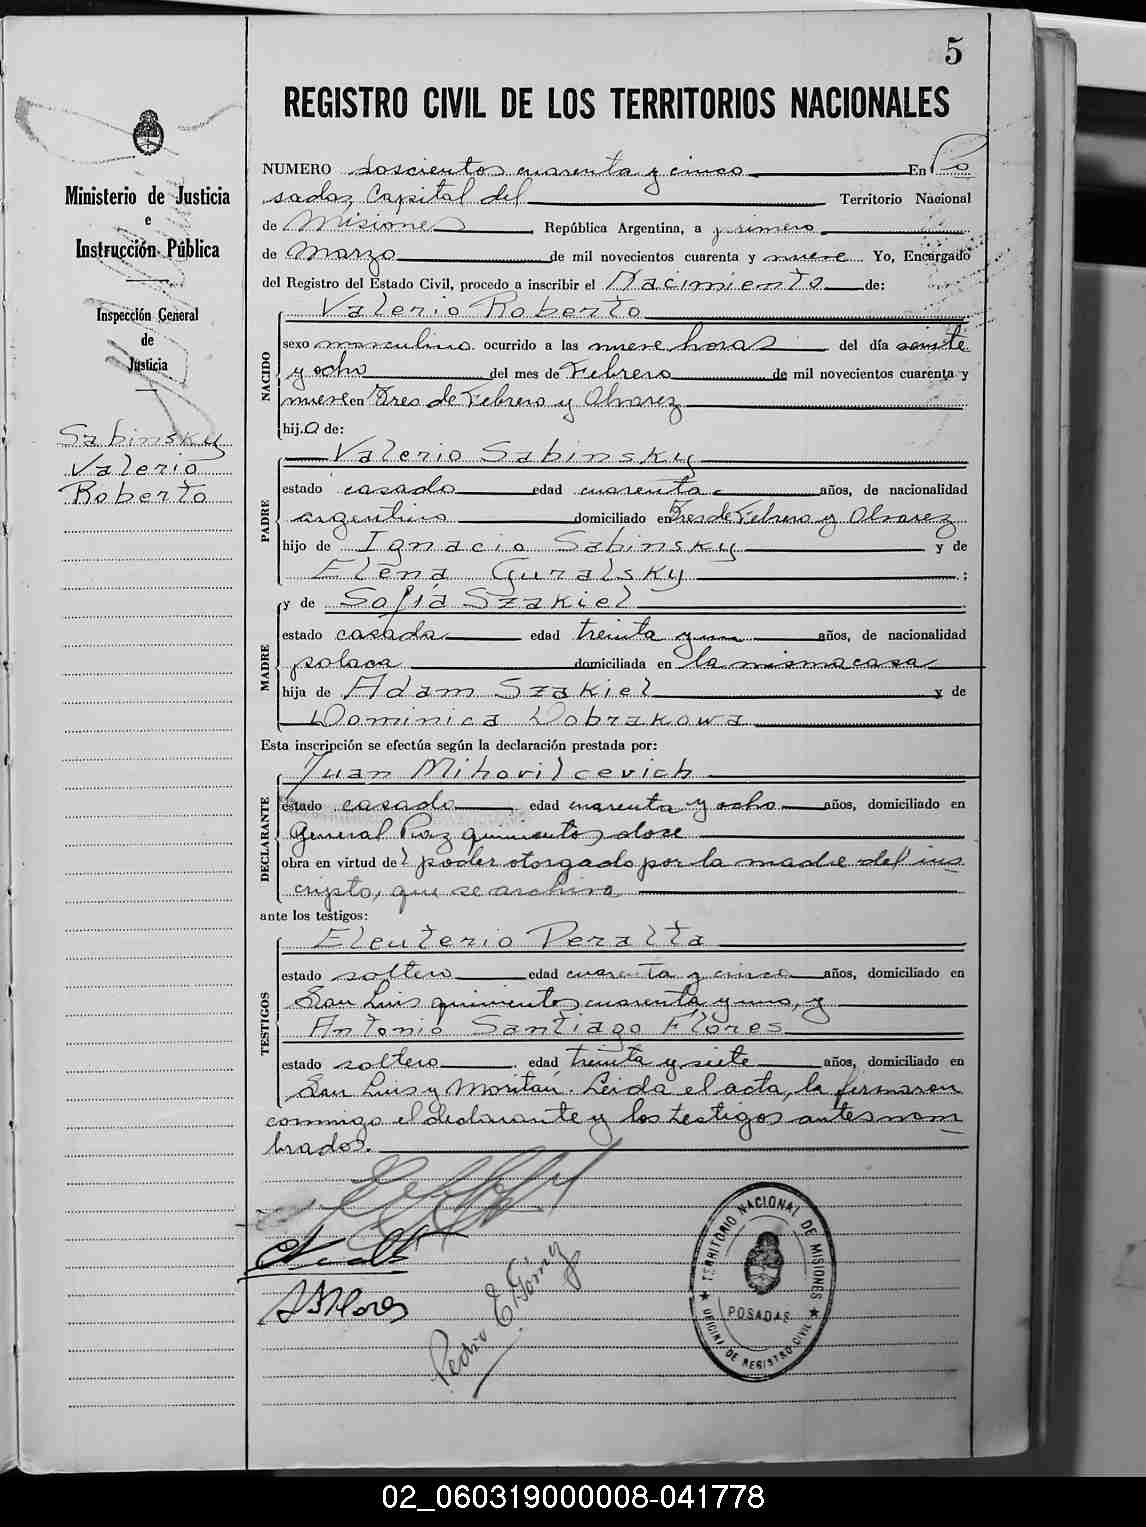 5
REGISTRO CIVIL DE LOS TERRITORIOS NACIONALES
Ministerio de Justicia
e
Instrucción Pública
Inspección General
de
Justicia
Sabinsky
Valerio
Roberto
NUMERO doscientos cuarenta y cinco En Po
sadas, Capital del Territorio Nacional
de Misiones República Argentina, a primero
de Marzo de mil novecientos cuarenta y nueve Yo, Encargado
del Registro del Estado Civil, procedo a inscribir el Nacimiento de:
NACIDO
Valerio Roberto
sexo masculino ocurrido a las nueve horas del día veinte
y ocho del mes de Febrero de mil novecientos cuarenta y
nueve en Tres de Febrero y Alvarez
hij.o de:
PADRE
Valerio Sabinsky
estado casado edad cuarenta años, de nacionalidad
argentino domiciliado en Tres de Febrero y Alvarez
hijo de Ignacio Sabinsky y de
Elena Guralsky ;
MADRE
y de Sofía Szakiel
estado casada edad treinta y un años, de nacionalidad
polaca domiciliada en la misma casa
hija de Adam Szakiel y de
Dominica Dobrakowa
Esta inscripción se efectúa según la declaración prestada por:
DECLARANTE
Juan Mihovilcevich
estado casado edad cuarenta y ocho años, domiciliado en
General Paz quinientos dose
obra en virtud de l poder otorgado por la madre del ins
cripto, que se archiva
ante los testigos:
TESTIGOS
Eleuterio Peralta
estado soltero edad cuarenta y cinco años, domiciliado en
San Luis quinientos cuarenta y uno, y
Antonio Santiago Flores
estado soltero edad treinta y siete años, domiciliado en
San Luis y Moritán. Leida el acta, la firmaron
conmigo el declarante y los testigos antes nom
brados.
ASFlores
Pedro E. Gómez
TERRITORIO NACIONAL DE MISIONES
POSADAS
OFICINA DE REGISTRO CIVIL
02_060319000008-041778